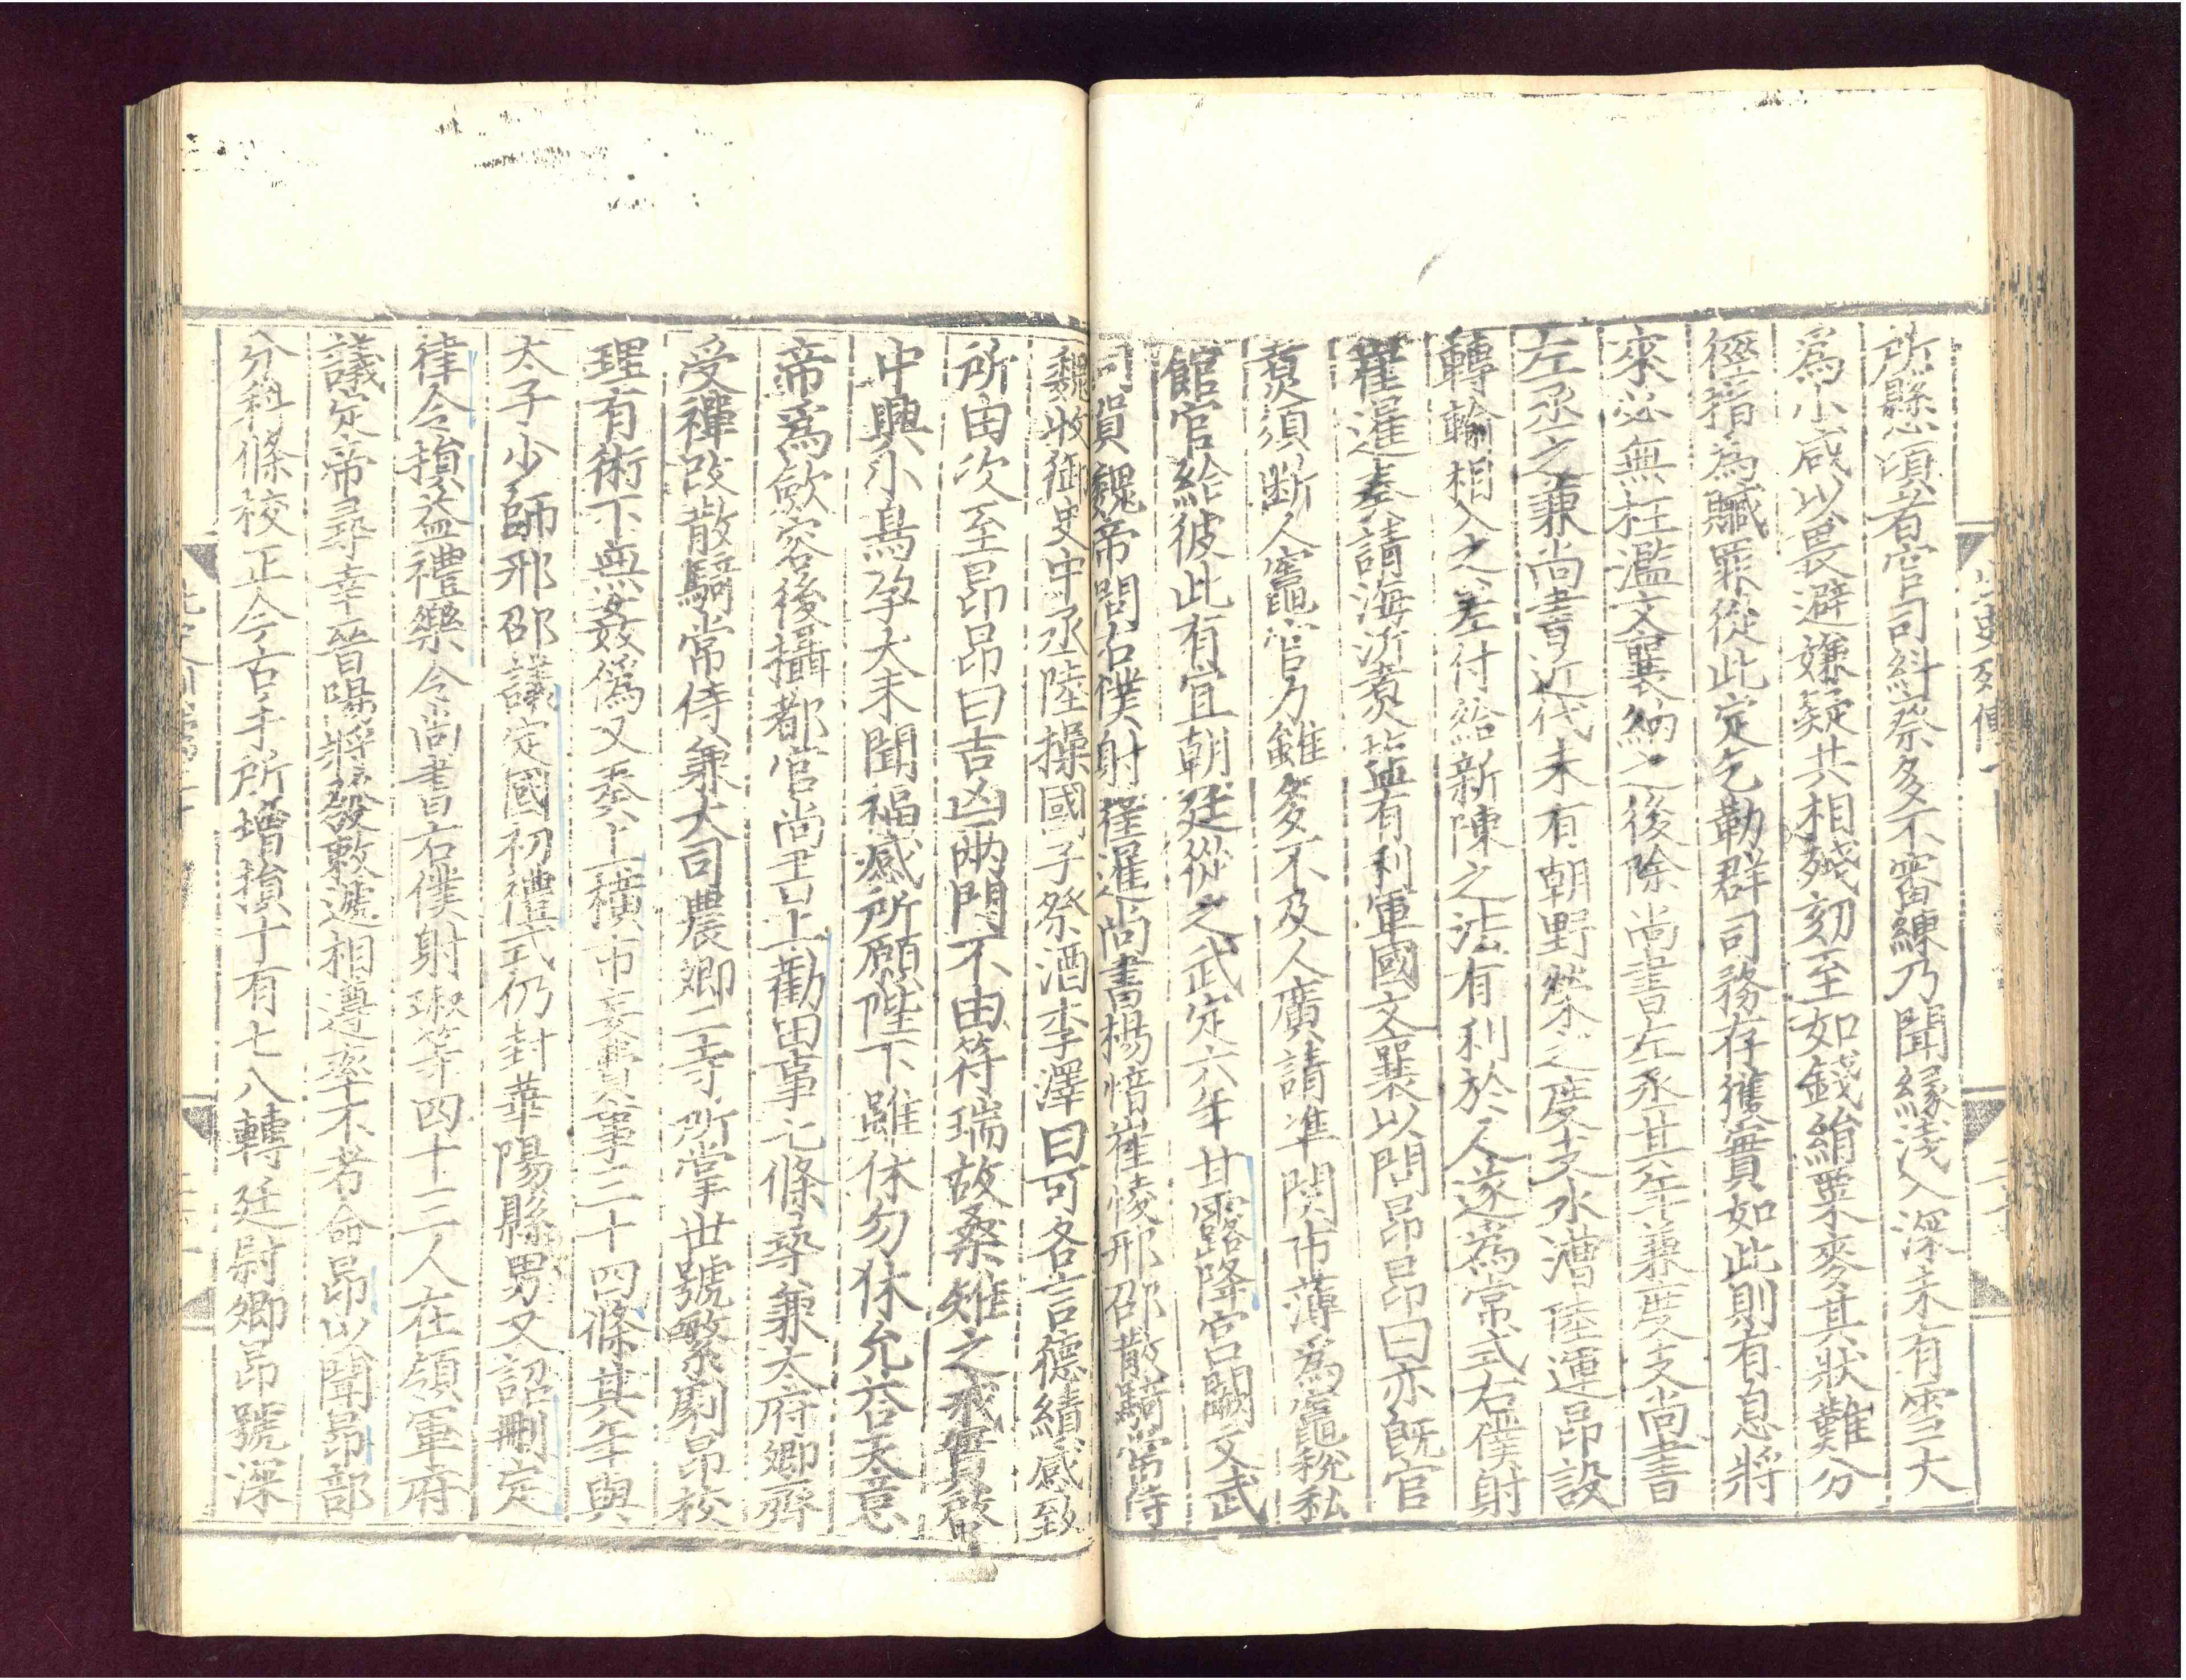 所懸頃者官司糾察多不審練乃聞緣淺入深未有雪大
為小咸以畏避嫌疑共相殘刻至如錢絹粟麥其狀難分
徑指為贓罪從此定乞勒群司務存獲實如此則有息將
來必無枉濫文襄納之後除尚書左丞其年兼度支尚書
左丞之兼尚書近代未有朝野榮之度支水漕陸運昂設
轉輸相入之差付給新陳之法有利於人遂為常式右僕射
崔暹奏請海沂煮鹽有利軍國文襄以問昂昂曰亦既官
煑須斷人竈官力雖多不及人廣請準関市薄為竈稅私
館官給彼此有宜朝廷從之武定六年甘露降宮闕文武
同賀魏帝問右僕射崔暹尚書楊愔崔㥄邢邵散騎常侍
魏收御史中丞陸操國子祭酒李澤曰可各言德績感致
所由次至昂昂曰吉凶兩門不由符瑞故桑雉之戒實啓中
中興小鳥孕大未聞福感所願陛下雖休勿休允荅天意
帝為歛容後攝都官尚書上勸田事七條尋兼太府卿齊
受禪改散騎常侍兼大司農卿二寺所掌世號繁劇昂校
理有術下無姦偽又奏上橫市妄費事三十四條其年與
太子少師邢邵議定國初禮式仍封華陽縣男又詔刪定
律令損益禮樂令尚書右僕射琡等四十三人在領軍府
議定帝尋幸晉陽將發敕遞相遵率不者命昂以聞昂部
分科條校正今古手所增損十有七八轉廷尉卿昂號深
北史列傳